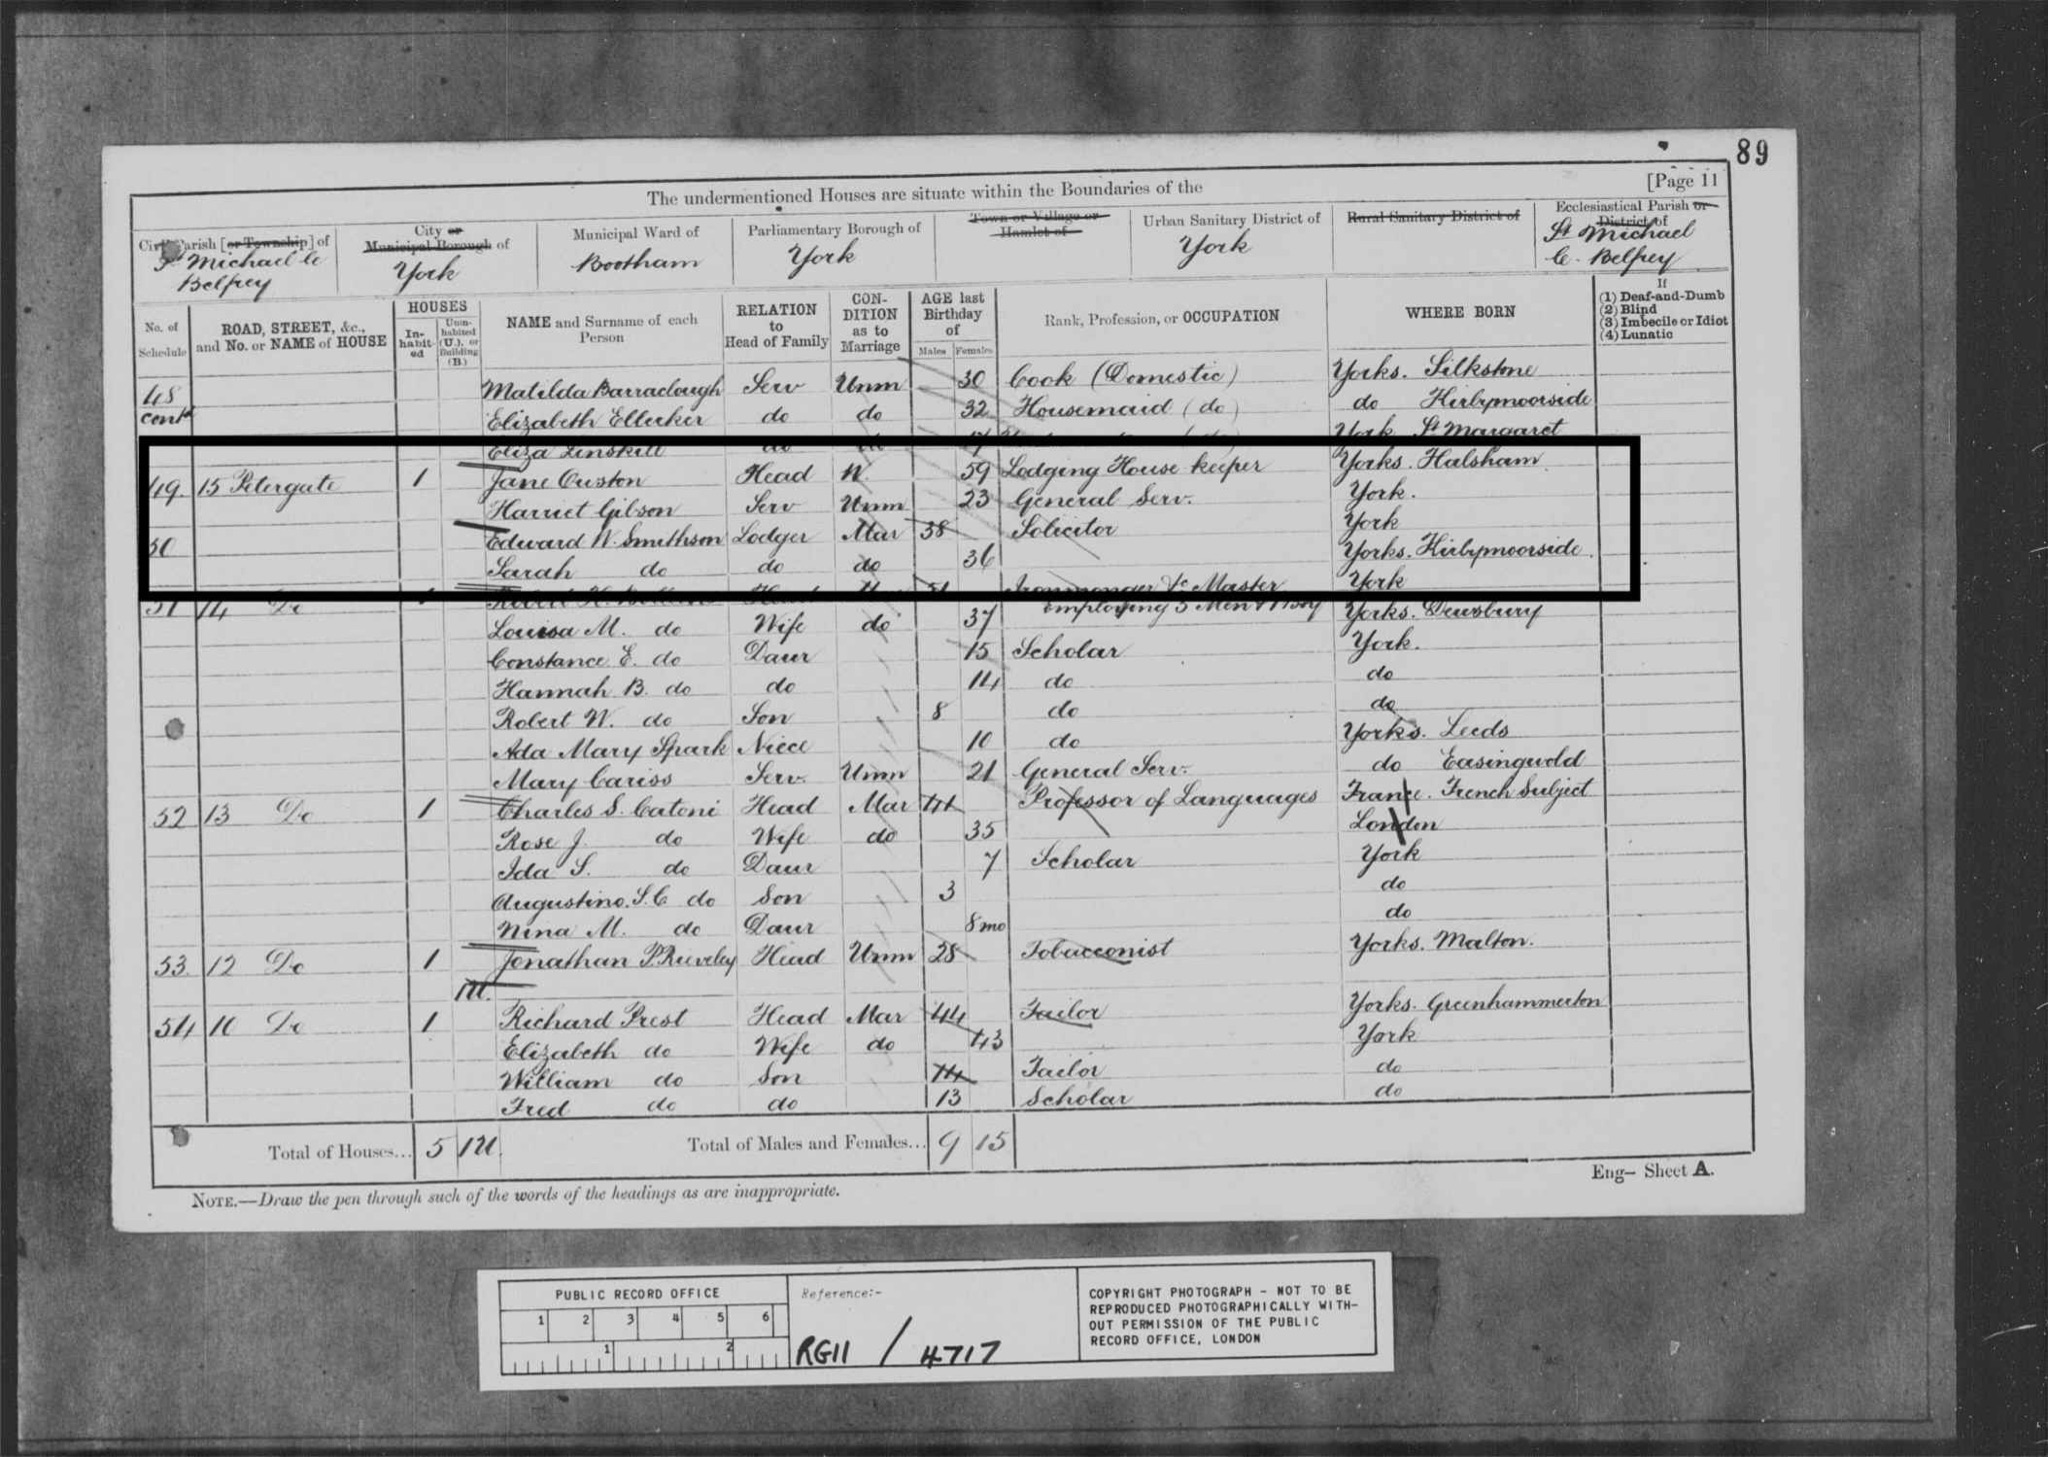 89
The undermentioned Houses are situate within the Boundaries of the [Page 11
Civil Parish [or Township] of
St Michael le Belfrey
City or Municipal Borough of
York
Municipal Ward of
Bootham
Parliamentary Borough of
York
Town or Village or Hamlet of
Urban Sanitary District of
York
Rural Sanitary District of
Ecclesiastical Parish or District of
St Michael le Belfrey
No. of Schedule
ROAD, STREET, &c., and No. or NAME of HOUSE
HOUSES
In-habit-ed
Unin-habited (U.), or Building (B.)
NAME and Surname of each Person
RELATION to Head of Family
CON-DITION as to Marriage
AGE last Birthday of
Males Females
Rank, Profession, or OCCUPATION
WHERE BORN
If
(1) Deaf-and-Dumb
(2) Blind
(3) Imbecile or Idiot
(4) Lunatic
48 contd Matilda Barraclough Serv Unm 30 Cook (Domestic) Yorks. Silkstone
Elizabeth Ellerker do do 32 Housemaid (do) do Kirbymoorside
Eliza Linskill do do York St Margaret
49 15 Petergate 1 Jane Ouston Head W. 59 Lodging House keeper Yorks. Halsham
Harriet Gibson Serv Unm 23 General Serv. York.
50 Edward W. Smithson Lodger Mar 38 Solicitor York
Sarah do do do 36 Yorks. Kirbymoorside
51 14 Do 1 Robert Head 51 Ironmonger &c Master York
Employing 5 Men & 1 Boy
Louisa M. do Wife do 37 Yorks. Dewsbury
Constance E. do Daur 15 Scholar York.
Hannah B. do do 14 do do
Robert W. do Son 8 do do
Ada Mary Spark Niece 10 do Yorks. Leeds
Mary Cariss Serv. Unm 21 General Serv. do Easingwold
52 13 Do 1 Charles S. Catoni Head Mar 41 Professor of Languages France. French Subject
Rose J. do Wife do 35 London
Ida S. do Daur 7 Scholar York
Augustino. S.C do Son 3 do
Nina M. do Daur 8 mo do
53 12 Do 1 Jonathan P. Reveley Head Unm 28 Tobacconist Yorks. Malton.
1U.
54 10 Do 1 Richard Prest Head Mar 44 Tailor Yorks. Greenhammerton
Elizabeth do Wife do 43 York
William do Son 14 Tailor do
Fred do do 13 Scholar do
Total of Houses... 5 1U. Total of Males and Females... 9 15
Eng– Sheet A.
NOTE.—Draw the pen through such of the words of the headings as are inappropriate.
PUBLIC RECORD OFFICE
1 2 3 4 5 6
1 2
Reference:-
RG11 / 4717
COPYRIGHT PHOTOGRAPH - NOT TO BE
REPRODUCED PHOTOGRAPHICALLY WITH-
OUT PERMISSION OF THE PUBLIC
RECORD OFFICE, LONDON